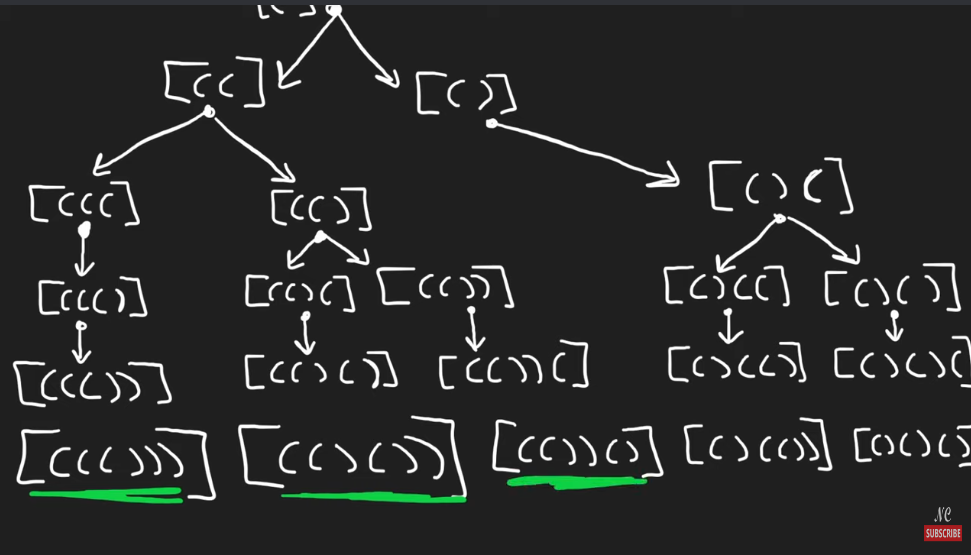 [( )
[(( ] [( )]
[((( ] [(( )] [( ) (]
[((( )] [(( ) (] [(( ))] [( ) ((] [( ) ( )]
[((( ))] [(( ) ( )] [(( )) (] [( ) (( )] [( ) ( ) (
[((( )))] [(( ) ( ))] [(( )) ( )] [( ) (( ))] [( ) ( ) ( )
NC
SUBSCRIBE